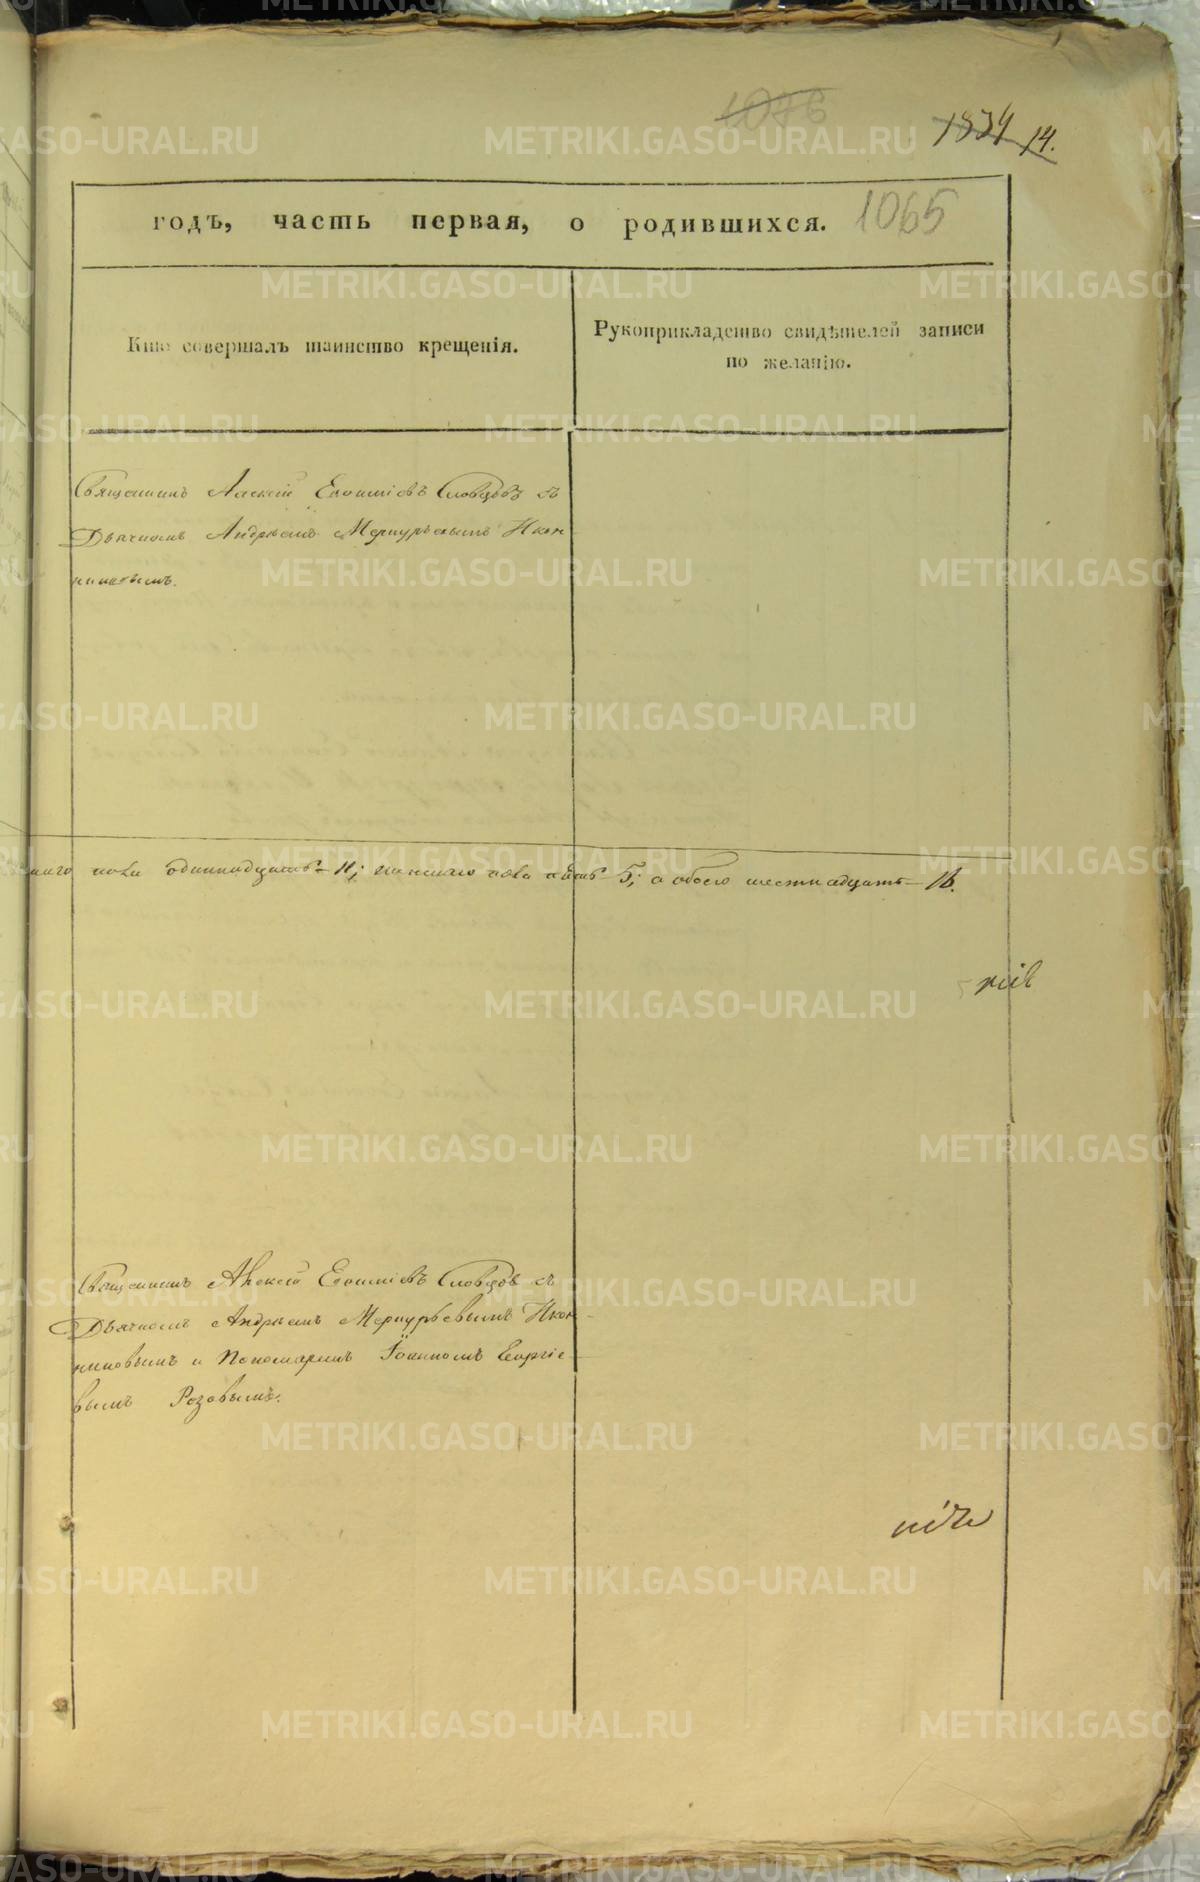 1076
1834 14.
годъ, часть первая, о родившихся. 1065
Кто совершалъ таинство крещенія.
Рукоприкладство свидѣтелей записи
по желанію.
Священникъ Алексій Евѳиміевъ Словцовъ съ
Дьячкомъ Андреемъ Меркурьевымъ Икон-
никовымъ.
пола одиннадцать - 11; женскаго пола пять - 5; а обоего шестнадцать - 16.
Священникъ Алексій Евѳиміевъ Словцовъ съ
Дьячкомъ Андреемъ Меркурьевымъ Икон-
никовымъ и Пономаремъ Іоанномъ Георгіе-
вымъ Розовымъ.
METRIKI.GASO-URAL.RU